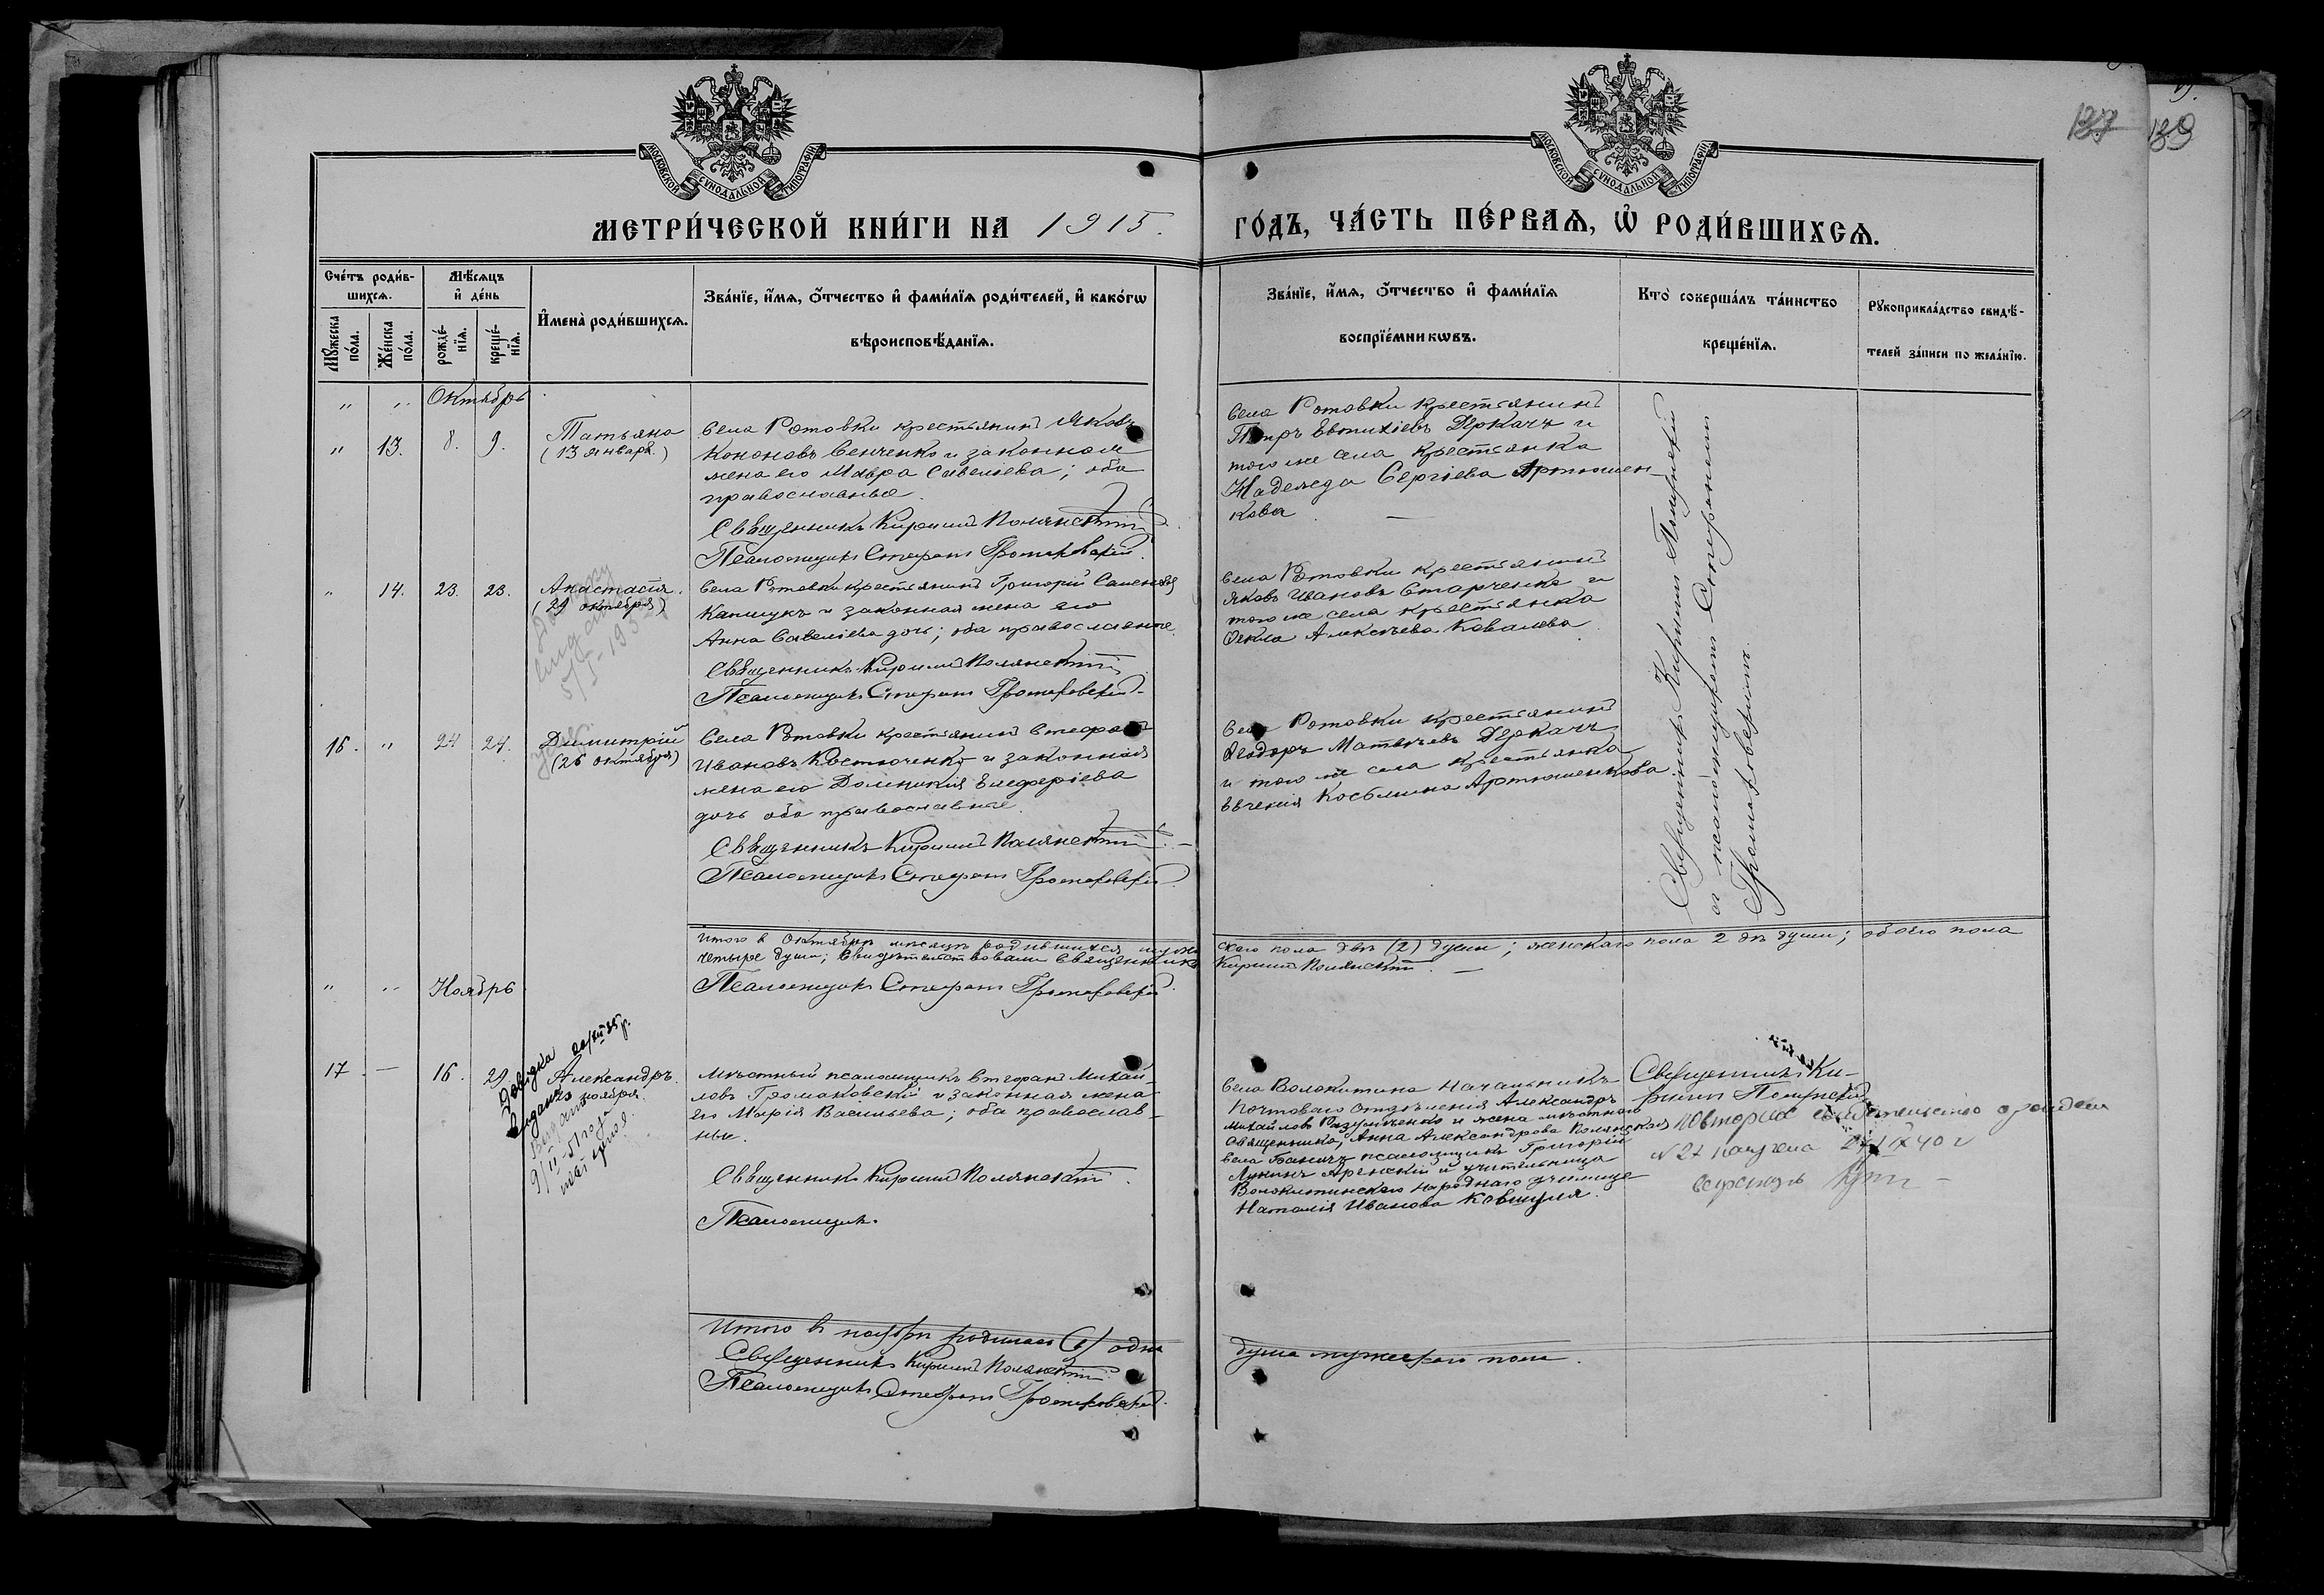 МОСКОВСКОЙ СѴНОДАЛЬНОЙ ТИПОГРАФІИ
МОСКОВСКОЙ СѴНОДАЛЬНОЙ ТИПОГРАФІИ
127
139
МЕТРИ́ЧЕСКОЙ КНИ́ГИ НА 1915.
ГО́ДЪ, ЧА́СТЬ ПЕ́РВАѦ, Ѽ РОДИ́ВШИХСѦ.
Сче́тъ роди́в-
шихсѧ.
Мꙋ́жеска по́ла.
Же́нска по́ла.
Мѣ́сѧцъ
и҆ де́нь
рожде́-
нїѧ.
креще́-
нїѧ.
И҆мена̀ роди́вшихсѧ.
Зва́нїе, и҆́мѧ, ѻ҆́тчество и҆ фами́лїѧ роди́телей, и҆ како́гѡ
вѣроисповѣ́данїѧ.
Зва́нїе, и҆́мѧ, ѻ҆́тчество и҆ фами́лїѧ
воспрїе́мникѡвъ.
Кто̀ соверша́лъ та́инство
креще́нїѧ.
Рꙋкоприкла́дство свидѣ́-
телей за́писи по жела́нїю.
" " Октябрь
" 13. 8. 9. Татьяна
(13 января.)
Села Ротовки крестьянинъ Яковъ
Кононовъ Сенченко и законная
жена его Мавра Савеліева; оба
православные.
Священникъ Кириллъ Полянскій
Псаломщикъ Стефанъ Громаковскій.
Села Ротовки крестьянинъ
Петръ Евтихіевъ Деркачъ и
того же села крестьянка
Надежда Сергіева Артюшен-
кова
" 14. 23. 23. Анастасія.
(29 октября)
5/I-1952
Села Ротовки крестьянинъ Григорій Семеновъ
Капшукъ и законная жена его
Анна Савеліева дочь; оба православные.
Священникъ Кириллъ Полянскій
Псаломщикъ Стефанъ Громаковскій.
Села Ротовки крестьянинъ
Яковъ Ивановъ Старченко и
того же села крестьянка
Ѳекла Алексѣева Ковалева.
16. " 24 24. Димитрій
(26 октября)
Села Ротовки крестьянинъ Стефанъ
Ивановъ Костюченко и законная
жена его Домникія Елефѳеріева
дочь оба православные.
Священникъ Кириллъ Полянскій.
Псаломщикъ Стефанъ Громаковскій.
Села Ротовки крестьянинъ
Ѳеодоръ Матвѣевъ Деркачъ
и того же села крестьянка
Евгенія Косьмина Артюшенкова
Священникъ Кириллъ Полянскій
съ псаломщикомъ Стефаномъ
Громаковскимъ.
Итого в Октябрѣ мѣсяцѣ родившихся муже
скаго пола двѣ (2) души; женскаго пола 2 двѣ души; обоего пола
четыре души; Свидѣтельствовали Священникъ
Кириллъ Полянскій.
Псаломщикъ Стефанъ Громаковскій.
" " Ноябрь
17. — 16. 29 Александръ.
23 ноября.
Довідка
видана
Мѣстный псаломщикъ Стефанъ Михай-
ловъ Громаковскій и законная жена
его Марія Васильева; оба православ-
ные.
Священникъ Кириллъ Полянскій.
Псаломщикъ.
Села Волокитина Начальникъ
Почтоваго отдѣленія Александръ
Михайловъ Разумѣенко и жена мѣстнаго
священника, Анна Александрова Полянская
села Баничъ псаломщикъ Григорій
Лукинъ Аренскій и учительница
Волокитинскаго народнаго училища
Наталія Иванова Ковшуля.
Священникъ Ки-
риллъ Полянскій
Повторне свидетельство о рожден
№ 21
Итого въ ноябрѣ родилась (1) одна
душа мужескаго пола.
Священникъ Кириллъ Полянскій
Псаломщикъ Стефанъ Громаковскій.